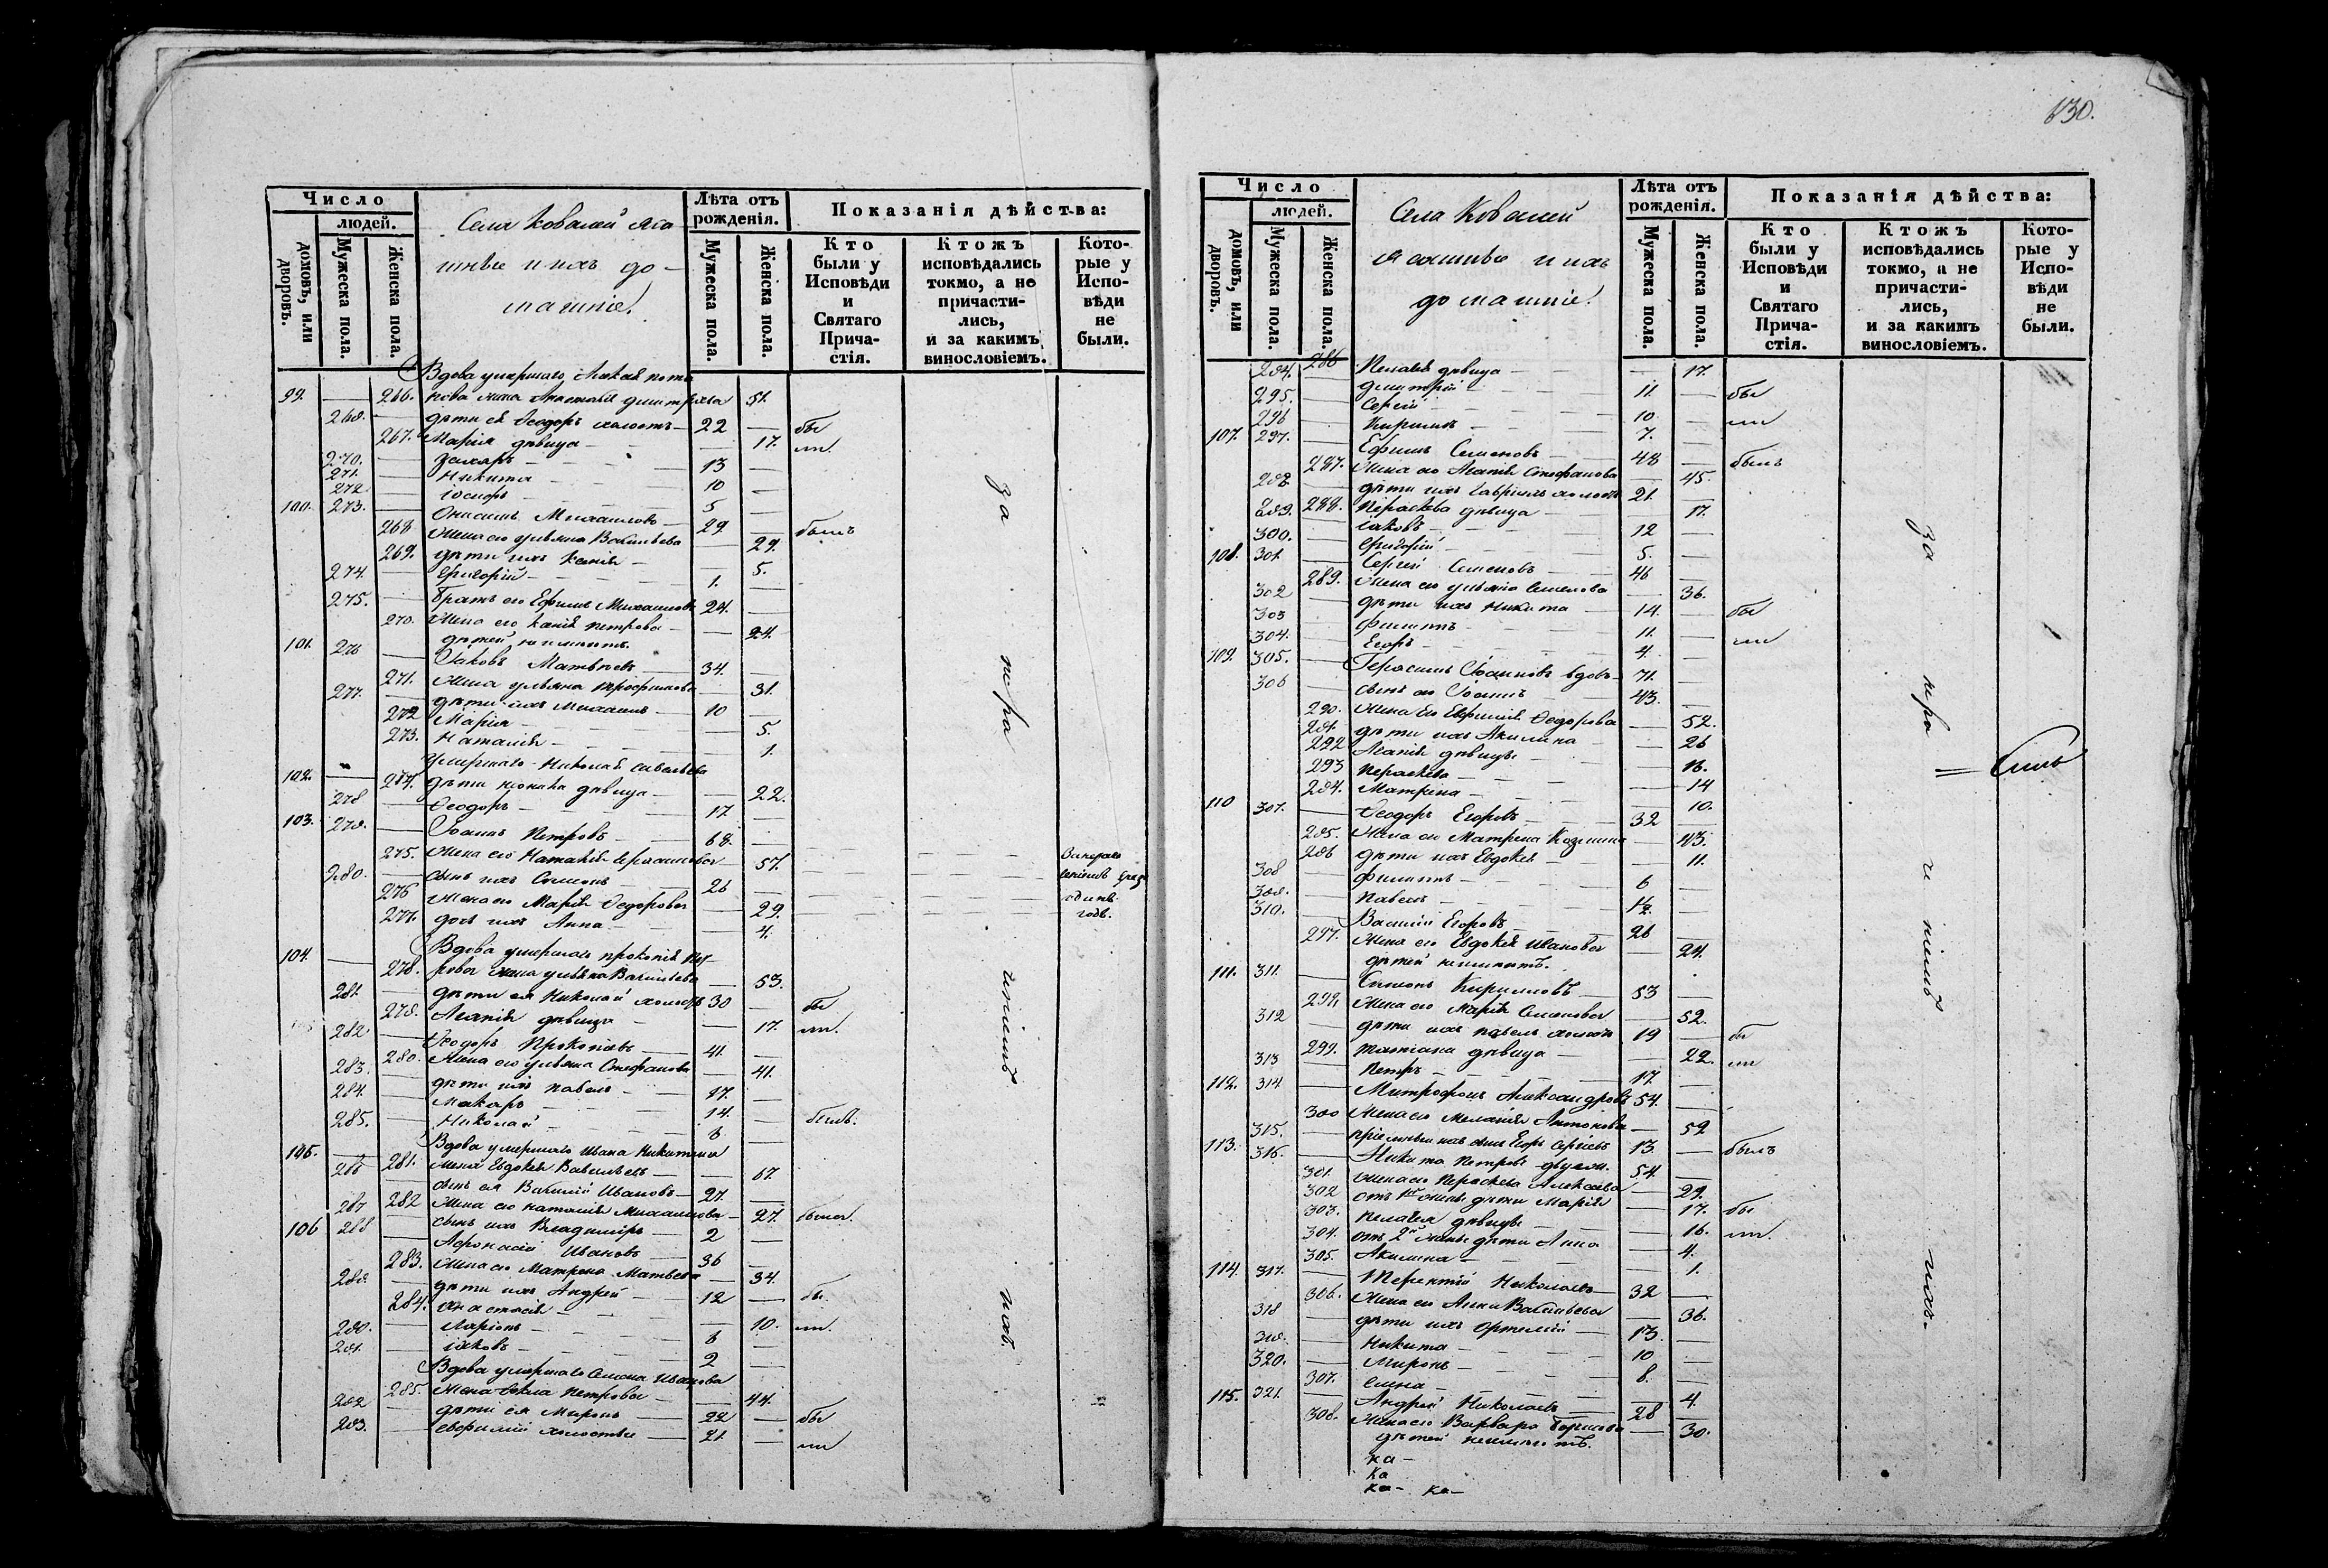 130.
Число
людей.
домовъ, или дворовъ.
Мужеска пола.
Женска пола.
Села Ковалей яса
шные и ихъ до-
машніе.
Лѣта отъ рожденія.
Мужеска пола.
Женска пола.
Показанія дѣйства:
Кто были у Исповѣди и Святаго Прича-стія.
Ктожъ исповѣдались токмо, а не причасти-лись, и за какимъ винословіемъ.
Кото-рые у Испо-вѣди не были.
Вдова умершаго
99. — 266. жена Анастасія Дмитріева 51.
268. — дѣти ея Ѳеодоръ холостъ — 22 — бы
267. Марія дѣвица — 17. ли.
270. — Захаръ — 13 —
271. — Никита — 10 —
272 — Іосифъ — 5 —
100. 273. — Онисимъ Михаиловъ — 29 — былъ
268 Жена его Ульяна Васильева — 29.
269. дѣти ихъ Ксенія — 5.
274. — Григорій — 1. —
275. — Братъ его Ефимъ Михаиловъ 24. —
270. Жена его Ксенія Петрова — 24.
дѣтей неимѣютъ.
101. 276 — Іаковъ Матвѣевъ — 34. —
271. Жена Ульяна Трофимова — 31.
277. — дѣти ихъ Михаилъ — 10 —
272 Марія — 5.
273. Наталія — 1.
Умершаго Николая Савельева
102. — 274. дѣти дѣвица — 22.
278 — Ѳеодоръ — 17 —
103. 279. — Іоаннъ Петровъ — 68. —
275. Жена его Наталія Герасимова — 57.
280. — сынъ ихъ Симеонъ — 26 —
276 Жена его Марія Ѳедорова — 29.
277. дочь ихъ Анна — 4.
одинъ
годъ.
104. — Вдова умершаго Прокопія Пет-
278. рова жена Ульяна Васильева — 53.
281. — дѣти ея Николай холостъ 30 — бы
279. Агапія дѣвица — 17. ли.
282 — Ѳеодоръ Прокопьевъ — 41. —
280. Жена его Ульяна Стефанова — 41.
283. — дѣти ихъ Павелъ — 17. —
284. — Макаръ — 14. —
285. — Николай — 8 — былъ.
105. — Вдова умершаго Ивана Никитина
281. жена Евдокія Васильева — 67.
286 — сынъ ея Василій Ивановъ — 27. —
282 Жена его Наталія Михаилова — 27. была.
287 — сынъ ихъ Владиміръ — 2 —
106 288 — Афонасій Ивановъ — 36 —
283. Жена его Матрена Матвеева — 34.
289. — дѣти ихъ Андрей — 12 — бы
284. Анастасія — 10. ли.
290. — Ларіонъ — 8 —
291. — Іаковъ — 2 —
Вдова умершаго Симеона Иванова
285. жена Ѳекла Петрова — 44.
292 — дѣти ея Миронъ — 22 — бы
293. — Евфимій холостые — 21. — ли
за нера ченіемъ ихъ.
Число
людей.
домовъ, или дворовъ.
Мужеска пола.
Женска пола.
Села Ковалей
ясашные и ихъ
домашніе.
Лѣта отъ рожденія.
Мужеска пола.
Женска пола.
Показанія дѣйства:
Кто были у Исповѣди и Святаго Прича-стія.
Ктожъ исповѣдались токмо, а не причасти-лись, и за какимъ винословіемъ.
Кото-рые у Испо-вѣди не были.
286 Пелагія дѣвица — 17.
294. — Дмитрій — 11. — бы
295. — Сергій — 10. — ли
296 — Кириллъ — 7. —
107. 297. — Ефимъ Симеоновъ — 48 — былъ
287. Жена его Агапія Стефанова — 45.
298 — дѣти ихъ Гавріилъ холостъ 21. —
288. Параскева дѣвица — 17.
299. — Іаковъ — 12 —
300. — Григорій — 5. —
108. 301. — Сергій Симеоновъ — 46 —
289. Жена его Ульяна Симеонова — 36.
302 — дѣти ихъ Никита — 14. — бы
303 — Филиппъ — 11. — ли
304. — Егоръ — 4. —
109. 305. — Герасимъ Іоанновъ вдовъ — 71. —
306 — сынъ его Іоаннъ — 43. —
290. Жена его Евфимія Ѳедорова — 52.
291. дѣти ихъ Акилина — 26
292 Агапія дѣвицы — 18.
293 Параскева — 14
294. Матрена — 10.
110 307. — Ѳеодоръ Егоровъ — 32 —
295. Жена его Матрена Козмина — 43.
296 дѣти ихъ Евдокія — 11.
308 — Филиппъ — 6 —
309. — Павелъ — 1½ —
310. — Василій Егоровъ — 26 —
297. Жена его Евдокія Иванова — 24.
дѣтей неимѣютъ.
111. 311. — Симеонъ Кирилловъ — 53 —
298. Жена его Марія Симеонова — 52.
312 — дѣти ихъ Павелъ холостъ 19 — бы
299. Татіана дѣвица — 22. ли
313 — Петръ — 17. —
112. 314 — Митрофанъ Александровъ 54. —
300 Жена его Меланія Антонова — 52
315. — пріемышъ ихъ Егоръ Сергіевъ 13. — былъ
113. 316. — Никита Петровъ 54. —
301. Жена его Параскева Алексѣева — 29.
302 отъ 1й жены дѣти Марія — 17. бы
303. Пелагія дѣвицы — 16. ли.
304. отъ 2й жены дѣти Анна — 4.
305. Акилина — 1.
114. 317. — Терентій Николаевъ — 32 —
306. Жена его Анна Васильева — 36.
318 — дѣти ихъ Артемій — 13. —
319. — Никита — 10 —
320. — Миронъ — 8. —
307. Елена — 4.
115. 321. — Андрей Николаевъ — 28 —
308. Жена его Варвара — 30.
дѣтей неимѣютъ.
ка-
ка
ка- ка-
за нера че ніемъ ихъ.